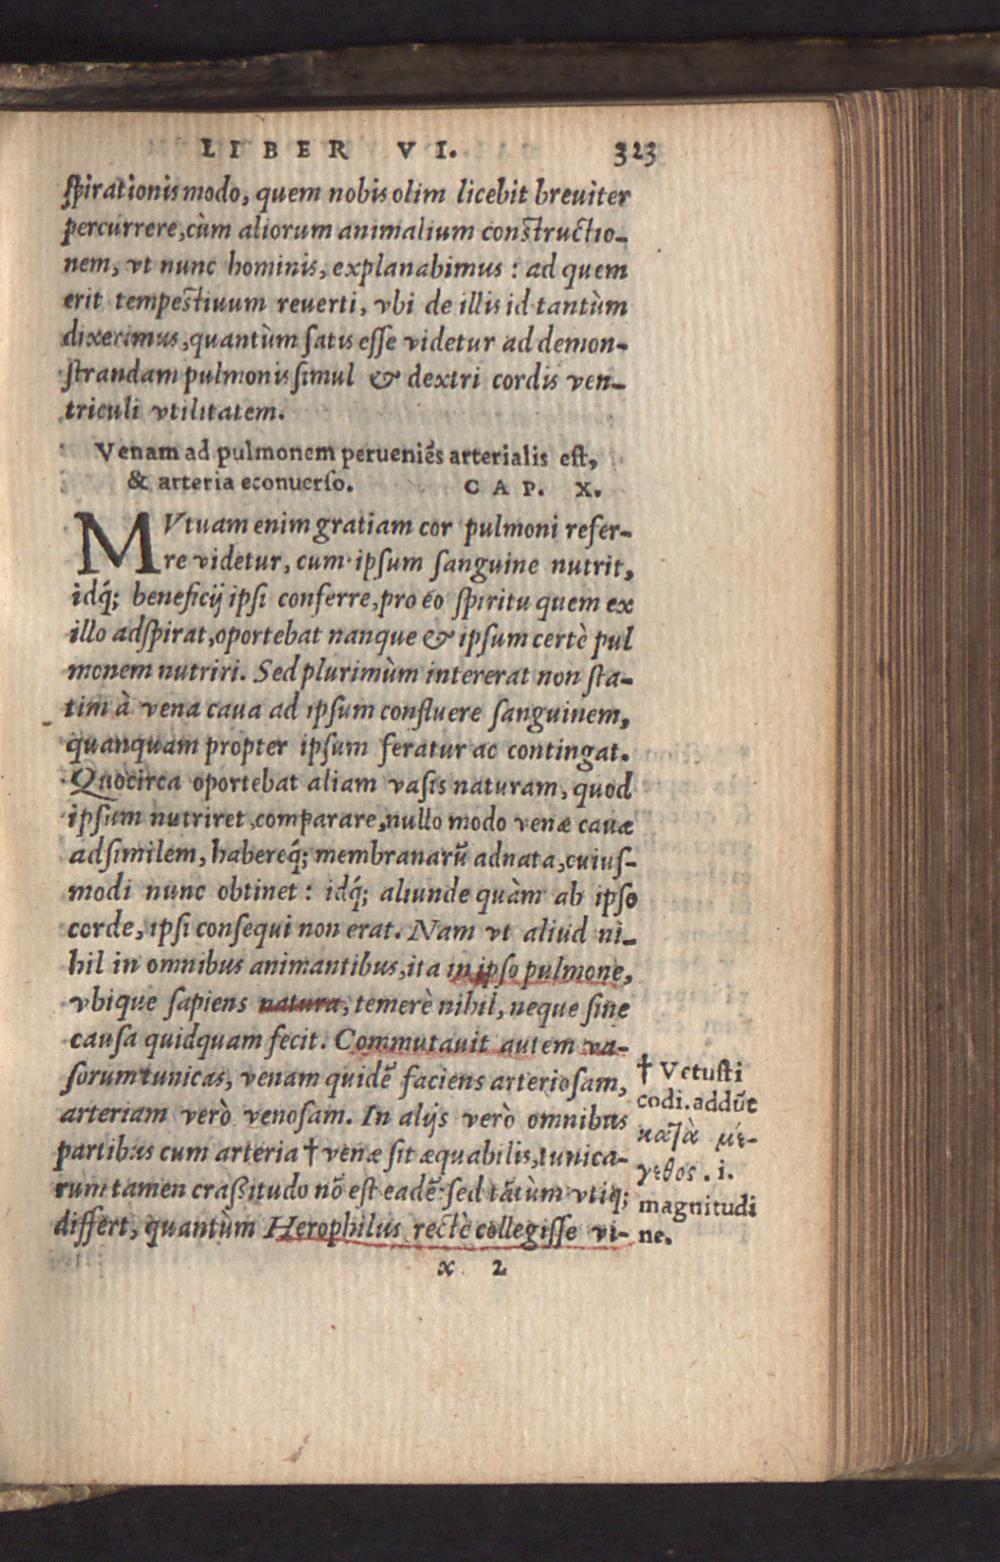 LIBER VI. 323
spirationis modo, quem nobis olim licebit breuiter
percurrere, cùm aliorum animalium constructio-
nem, vt nunc hominis, explanabimus : ad quem
erit tempestiuum reuerti, vbi de illis id tantùm
dixerimus, quantùm satis esse videtur ad demon-
strandam pulmonis simul & dextri cordis ven-
triculi vtilitatem.
Venam ad pulmonem perueniẽs arterialis est,
& arteria econuerso. CAP. X.
MVtuam enim gratiam cor pulmoni refer-
re videtur, cum ipsum sanguine nutrit,
idq́; beneficij ipsi conferre, pro eo spiritu quem ex
illo adspirat, oportebat nanque & ipsum certè pul
monem nutriri. Sed plurimùm intererat non sta-
tim à vena caua ad ipsum confluere sanguinem,
quanquam propter ipsum feratur ac contingat.
Quocirca oportebat aliam vasis naturam, quod
ipsum nutriret, comparare, nullo modo venæ cauæ
adsimilem, habereq́; membranarũ adnata, cuius-
modi nunc obtinet : idq́; aliunde quàm ab ipso
corde, ipsi consequi non erat. Nam vt aliud ni-
hil in omnibus animantibus, ita in ipso pulmone,
vbique sapiens natura, temerè nihil, neque sine
causa quidquam fecit. Commutauit autem va-
sorum tunicas, venam quidẽ faciens arteriosam,
arteriam verò venosam. In alijs verò omnibus
partibus cum arteria † venæ sit æquabilis, tunica-
rum tamen crassitudo nõ est eadẽ: sed tãtùm vtiq;
differt, quantùm Herophilus rectè collegisse vi-
† Vetusti
codi. addũt
κατὰ μέ-
γεθος . i.
magnitudi
ne.
x 2